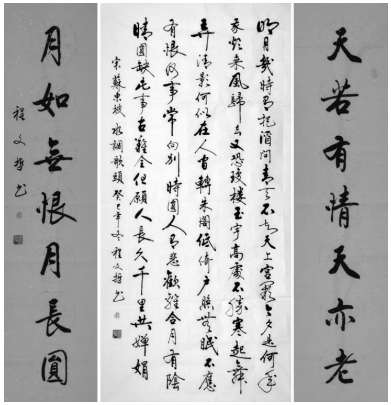 天若有情天亦老
明月幾時有把酒問青天不知天上宮闕今夕是何年
我欲乘風歸去又恐瓊樓玉宇高處不勝寒起舞
弄清影何似在人間轉朱閣低綺戶照無眠不應
有恨何事常向別時圓人有悲歡離合月有陰
晴圓缺此事古難全但願人長久千里共嬋娟
宋蘇東坡水調歌頭癸巳年冬程文哲书
月如無恨月長圓
程文哲书